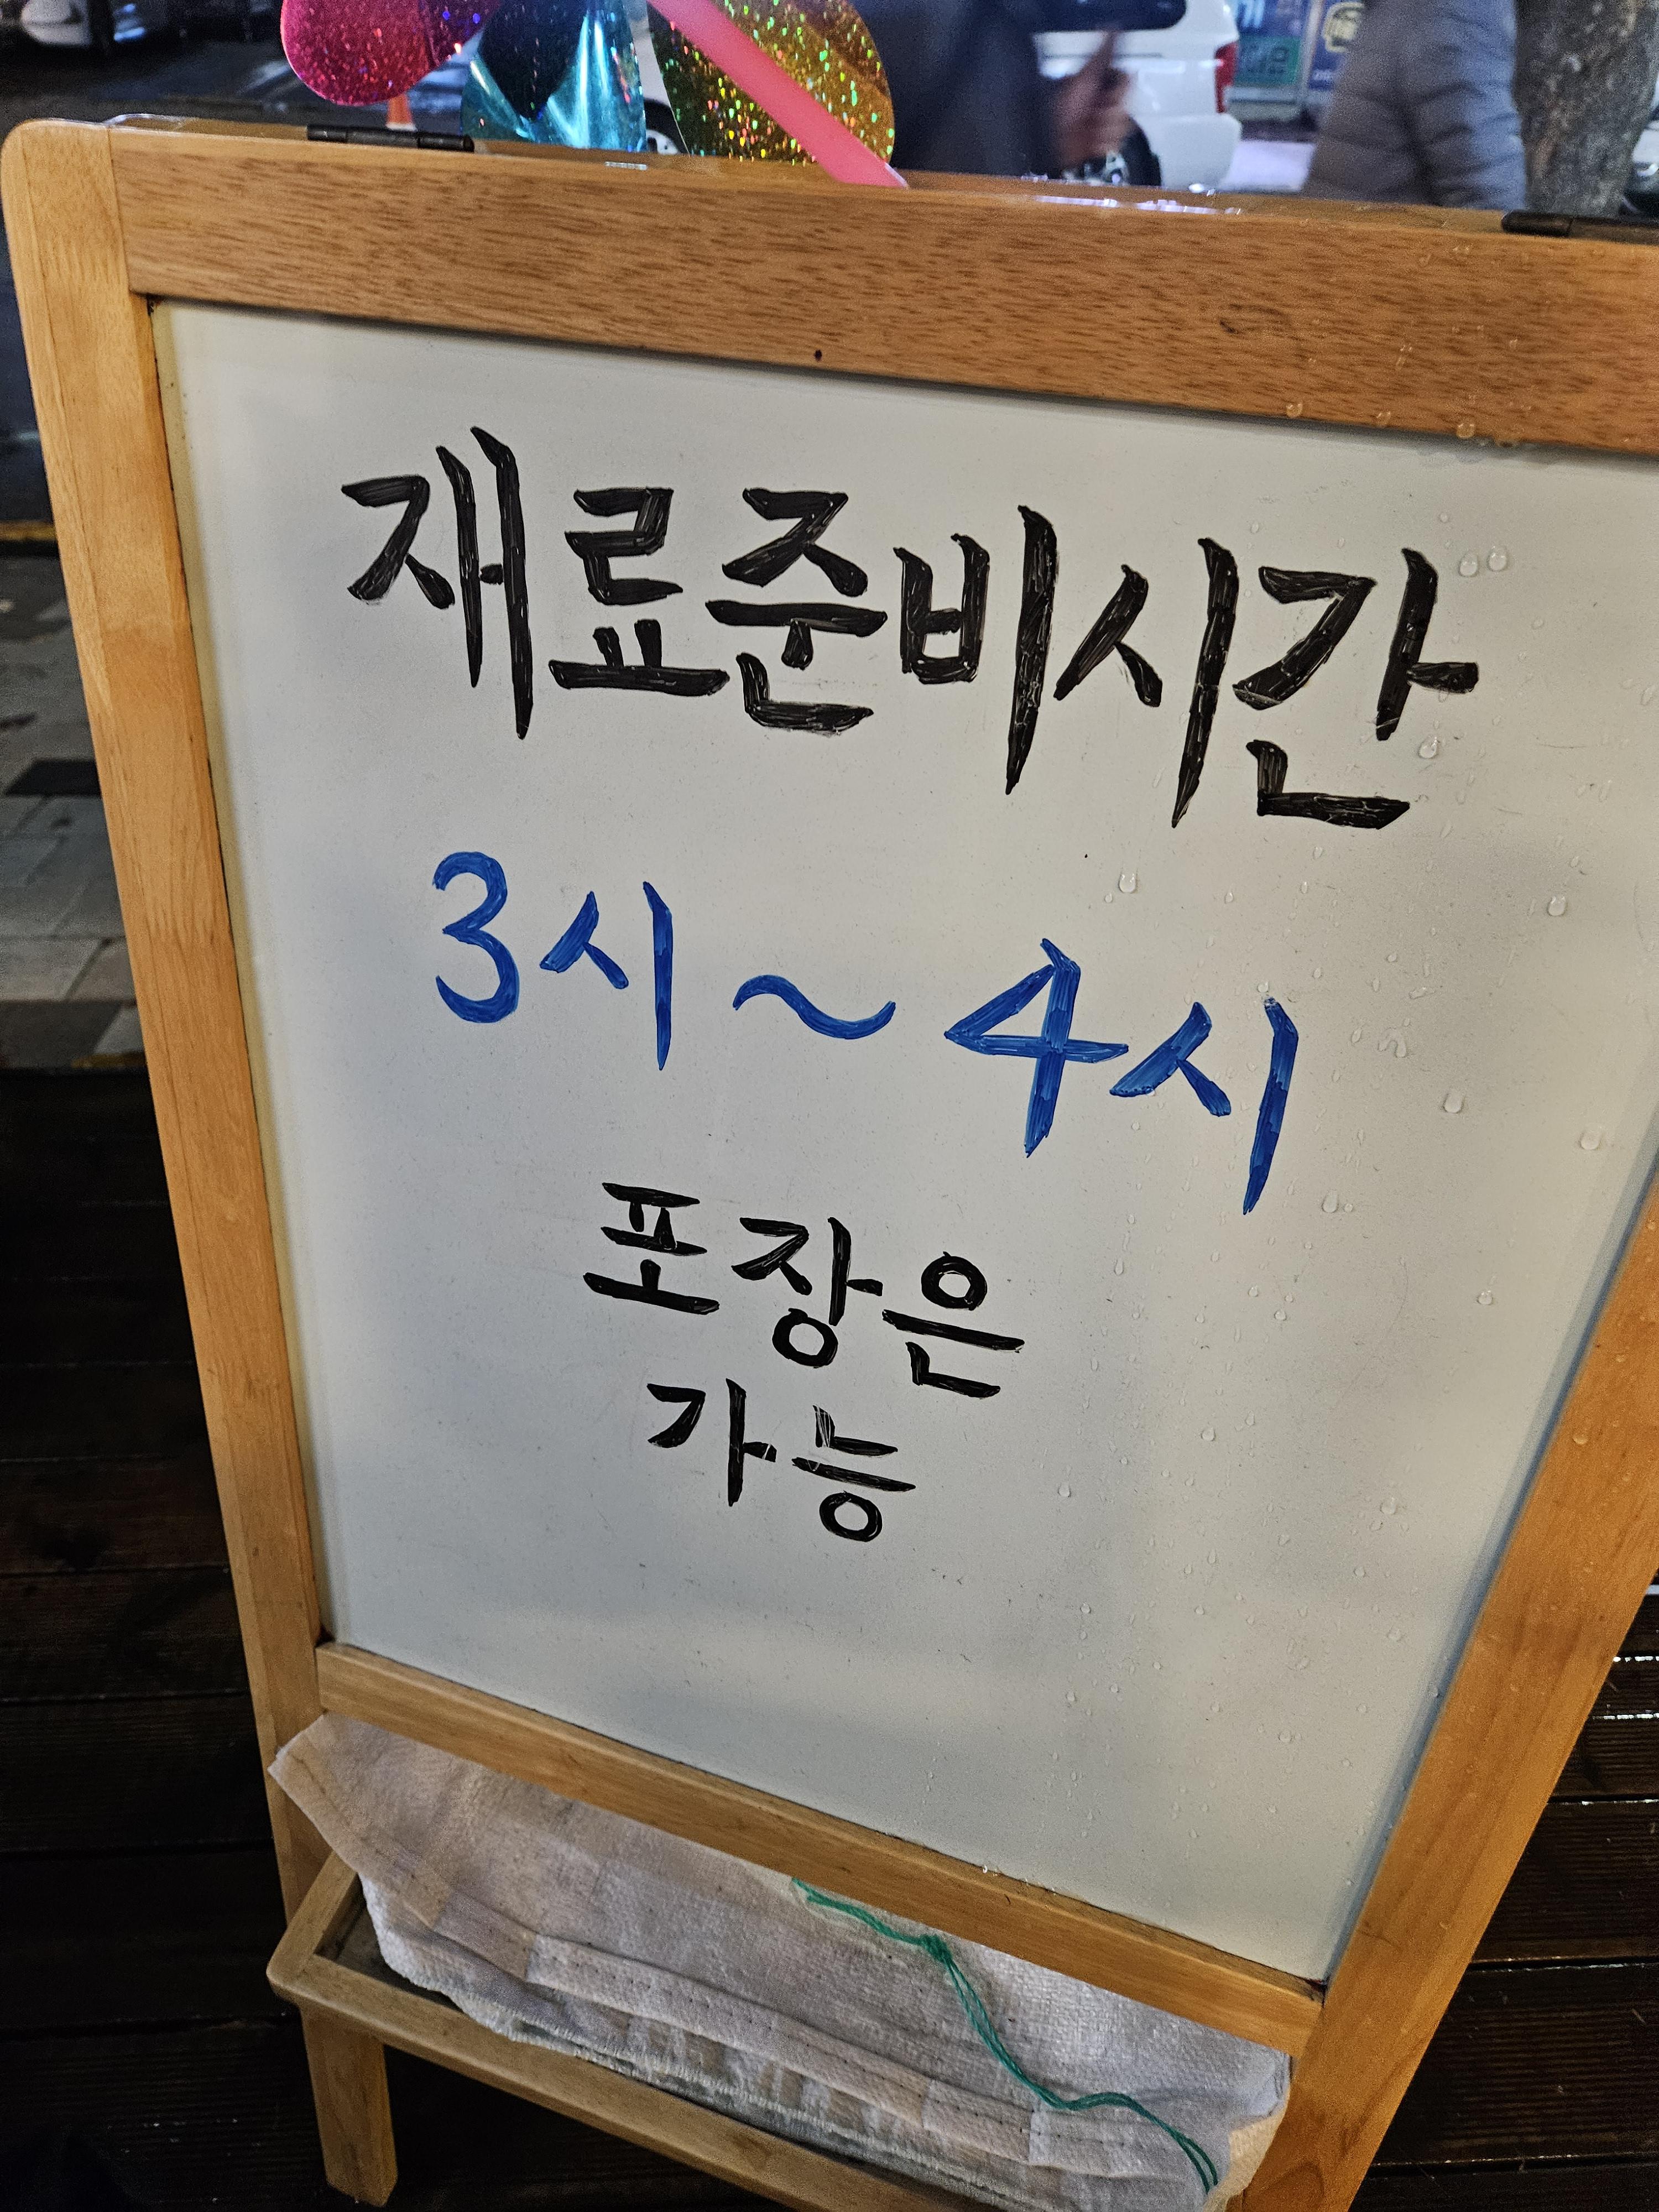 재료준비시간
3시~4시
포장은
가능